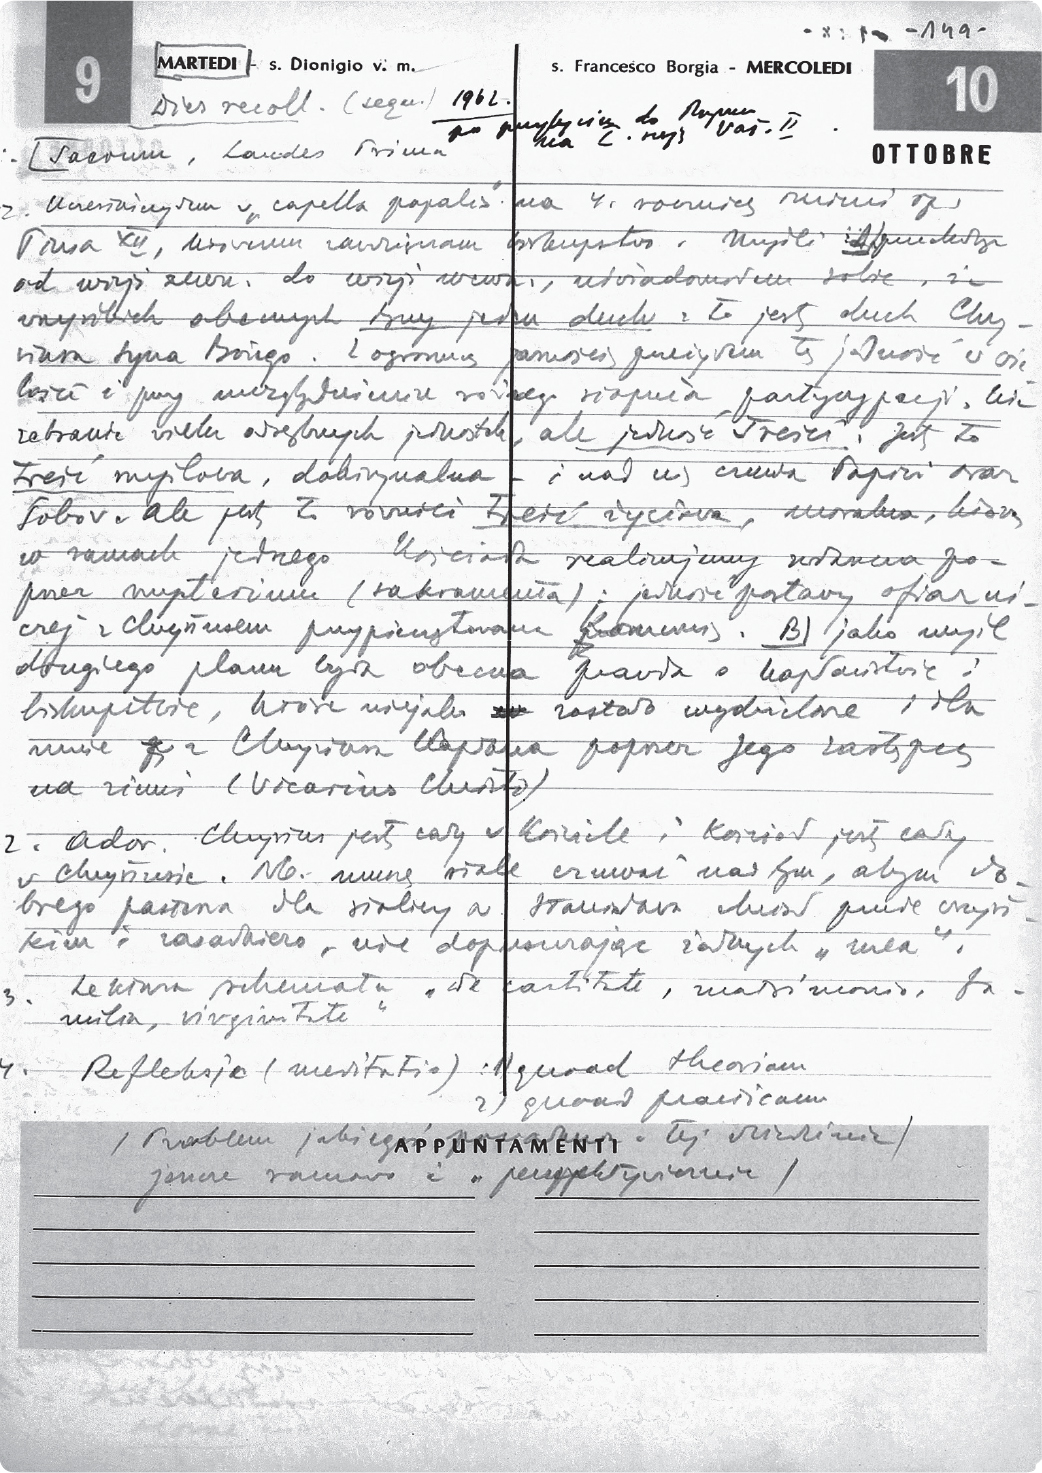 -149-
9
MARTEDI - s. Dionigio v. m.
s. Francesco Borgia - MERCOLEDI
10
OTTOBRE
Dies recoll. (sequ.) 1962.
po przybyciu do Rzymu
na I. sesję Vat. II
Sacrum, Laudes Prima
Uczestniczyłem w „capella papalis" na 4. rocznicę śmierci Ojca
Piusa XII, któremu zawdzięczam biskupstwo. Myśli: A) przechodząc
od wizji zewn. do wizji wewn., uświadomiłem sobie, że
wszystkich obecnych łączy jeden duch: to jest duch Chry-
stusa Syna Bożego. Z ogromną jasnością przeżyłem tę jedność w wie-
lości i przy uwzględnieniu różnego stopnia partycypacji. Nie
zebranie wielu odrębnych jednostek, ale jedność treści. Jest to
treść myślowa, doktrynalna - i nad nią czuwa Papież oraz
Sobór. Ale jest to również treść życiowa, moralna, którą
w ramach jednego Kościoła realizujemy zwłaszcza po-
przez mysterium (sakramenta): jedność postawy ofiarni-
czej z Chrystusem przypieczętowana Komunią. B) jako myśl
drugiego planu była obecna prawda o kapłaństwie i
biskupstwie, które niejako zostało wydzielone i dla
mnie z Chrystusa Kapłana poprzez Jego zastępcę
na ziemi (Vicarius Christi)
2. Ador. Chrystus jest cały w Kościele i Kościół jest cały
w Chrystusie. NB. muszę stale czuwać nad tym, abym do-
brego pasterza dla stolicy św. Stanisława chciał przede wszyst-
kim i zasadniczo, nie dopuszczając żadnych „mea".
3. Lektura schematu „de castitate, matrimonio, fa-
milia, virginitate"
4. Refleksja (meditatio): 1) quoad theoriam
2) quoad practicam
APPUNTAMENTI
(Problem jakiegoś tej dziedzinie)
jeszcze ramowo i „perspektywicznie)